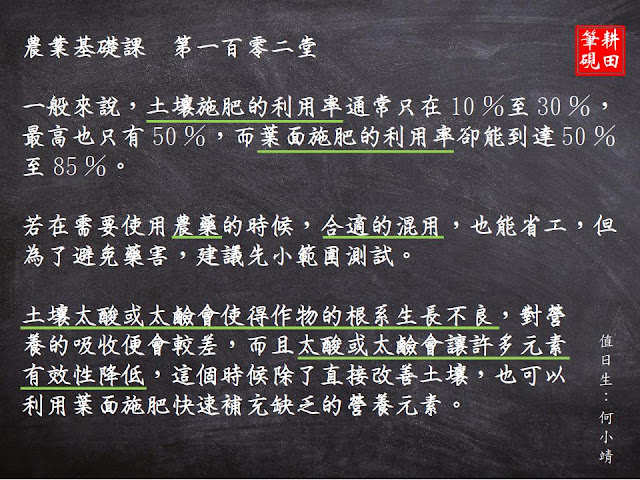 農業基礎課　第一百零二堂
耕田
筆硯
一般來說，土壤施肥的利用率通常只在 10％至 30％，
最高也只有 50％，而葉面施肥的利用率卻能到達 50％
至 85％。
若在需要使用農藥的時候，合適的混用，也能省工，但
為了避免藥害，建議先小範圍測試。
土壤太酸或太鹼會使得作物的根系生長不良，對營
養的吸收便會較差，而且太酸或太鹼會讓許多元素
有效性降低，這個時候除了直接改善土壤，也可以
利用葉面施肥快速補充缺乏的營養元素。
值日生：何小靖